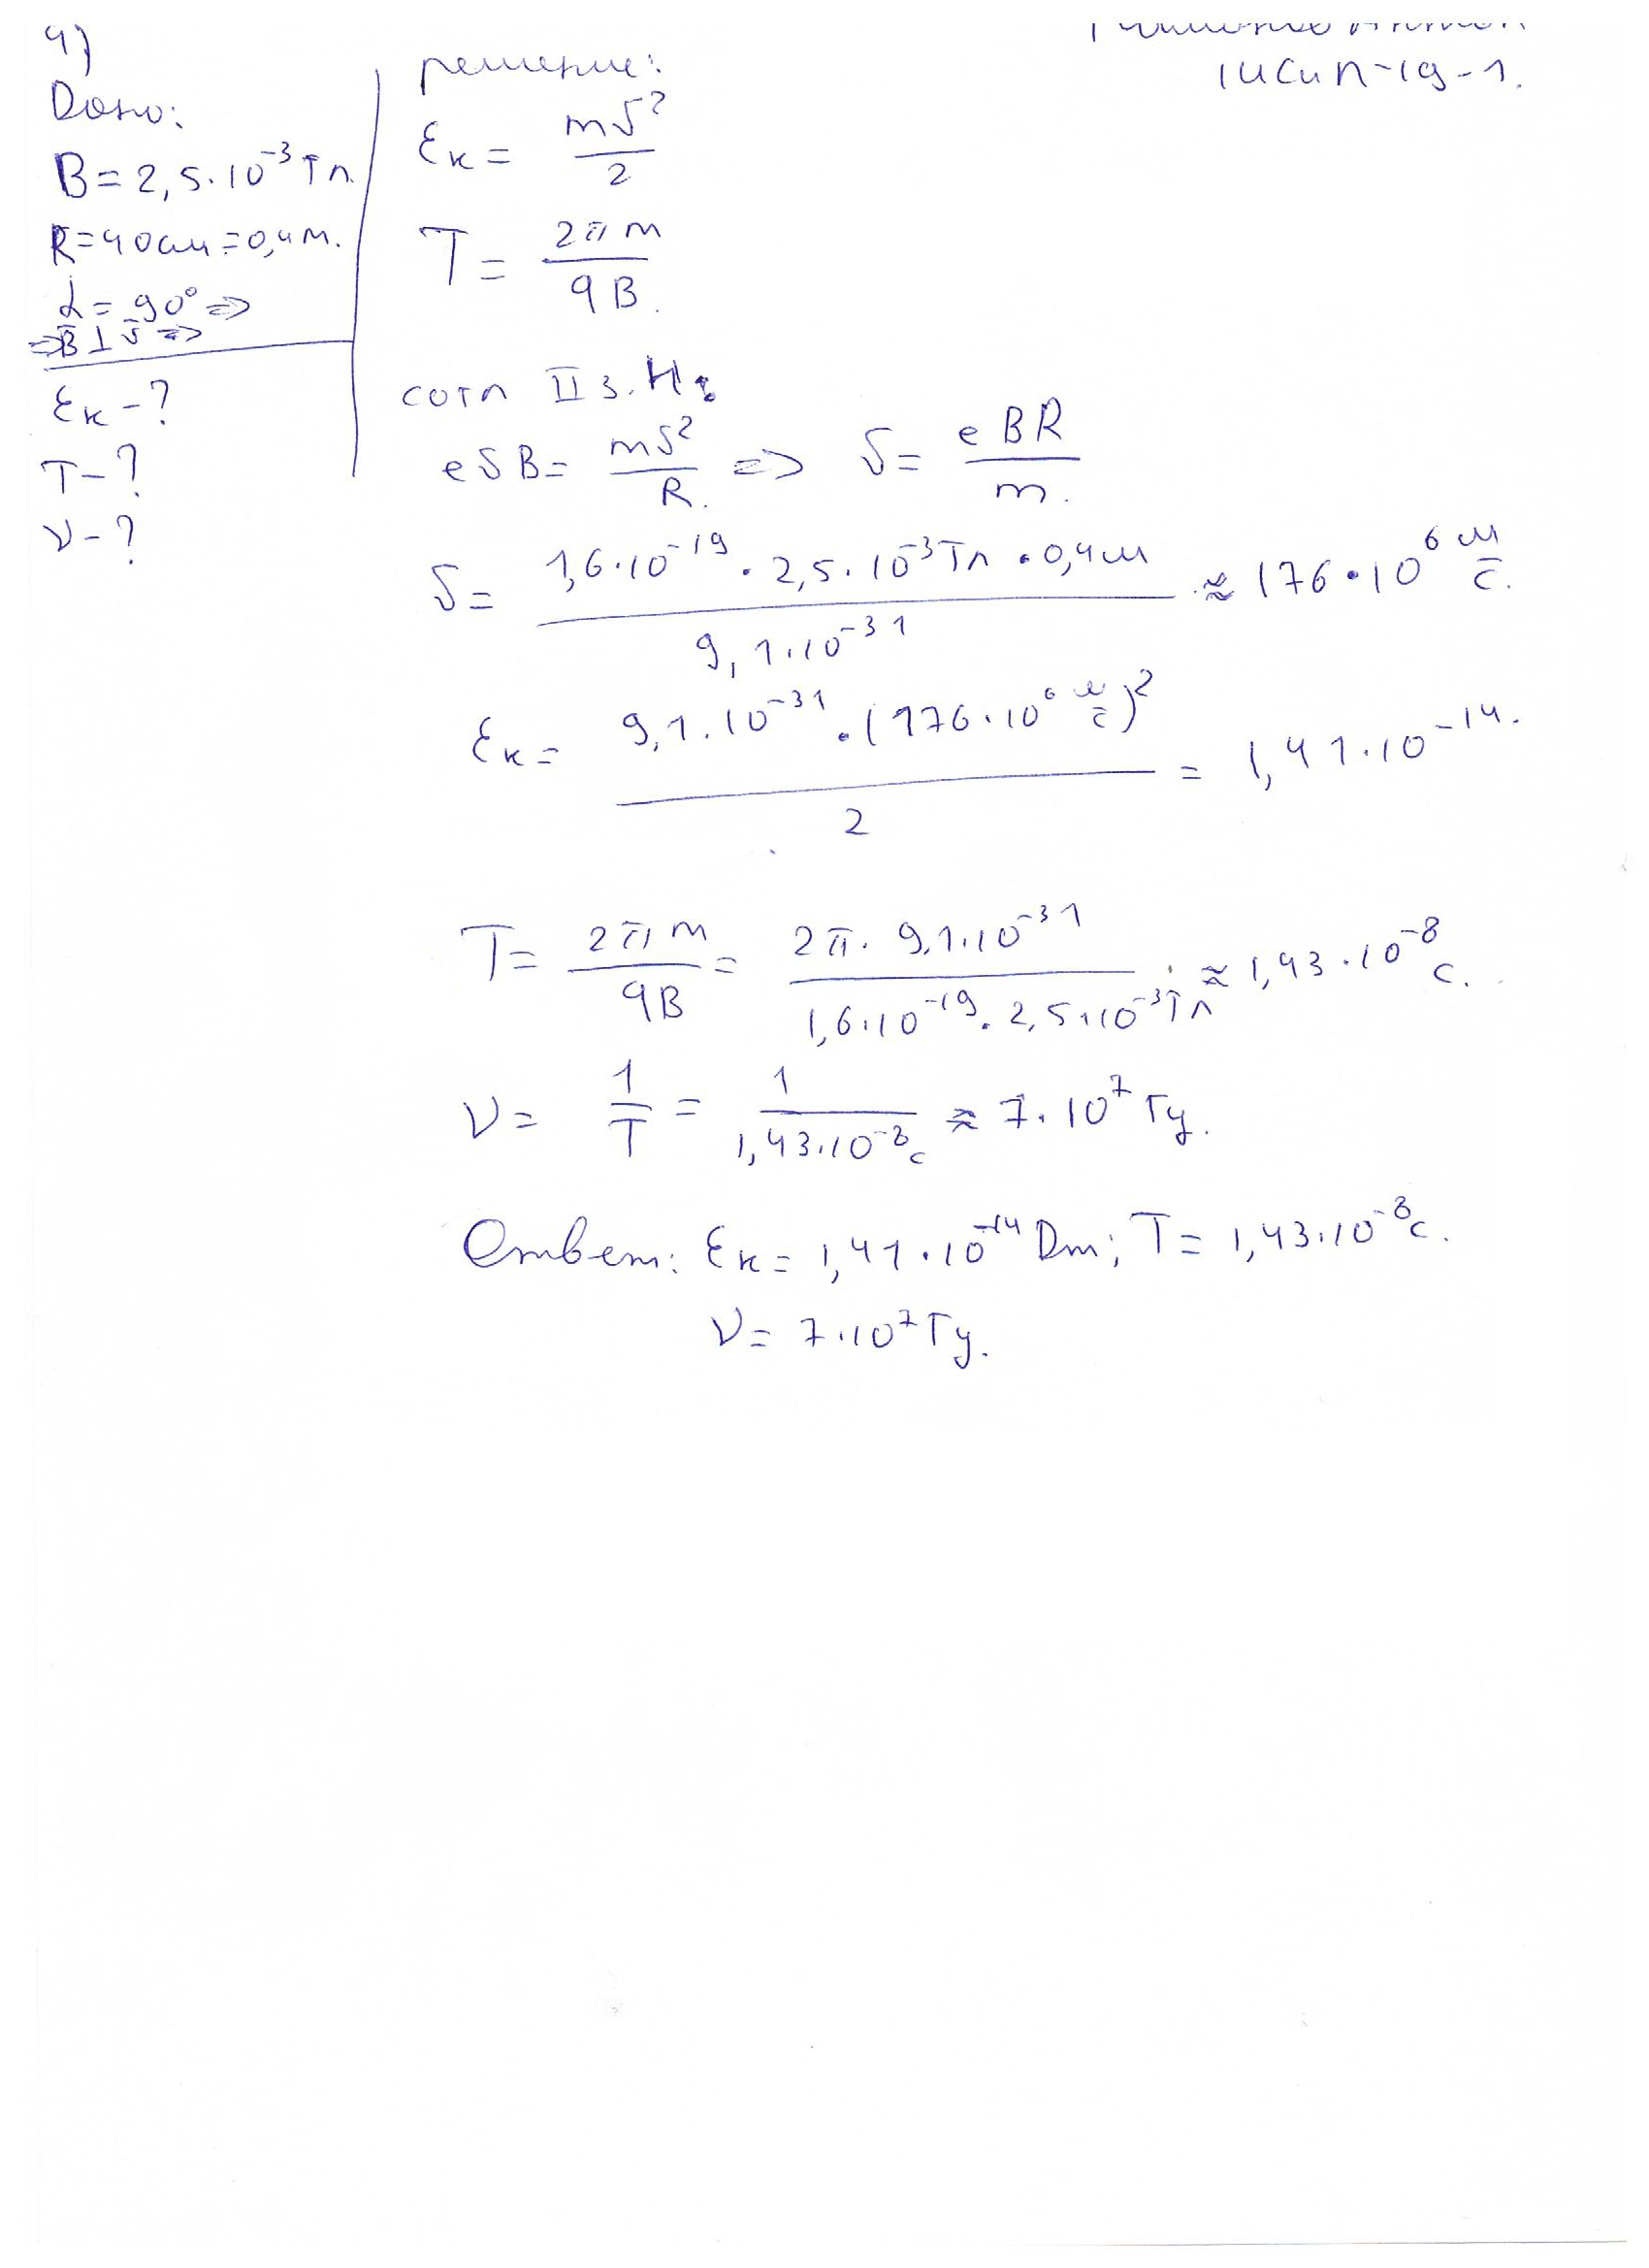 4)
Дано:
B = 2,5·10⁻³ Тл.
R = 40см = 0,4м.
α = 90° =>
=> B̄ ⊥ v̄ =>
Eк - ?
T - ?
ν - ?
1ИСиП-19-1.
решение:
Eк = mv²/2
T = 2πm/qB.
согл II з. Н:
evB = mv²/R. => v = eBR/m.
v = 1,6·10⁻¹⁹·2,5·10⁻³Тл·0,4м/9,1·10⁻³¹ ≈ 176·10⁶ м/с.
Eк = 9,1·10⁻³¹·(176·10⁶ м/с)²/2 = 1,41·10⁻¹⁴.
T = 2πm/qB = 2π·9,1·10⁻³¹/1,6·10⁻¹⁹·2,5·10⁻³Тл ≈ 1,43·10⁻⁸ с.
ν = 1/T = 1/1,43·10⁻⁸с ≈ 7·10⁷ Гц.
Ответ: Eк = 1,41·10⁻¹⁴ Дж; T = 1,43·10⁻⁸с.
ν = 7·10⁷ Гц.